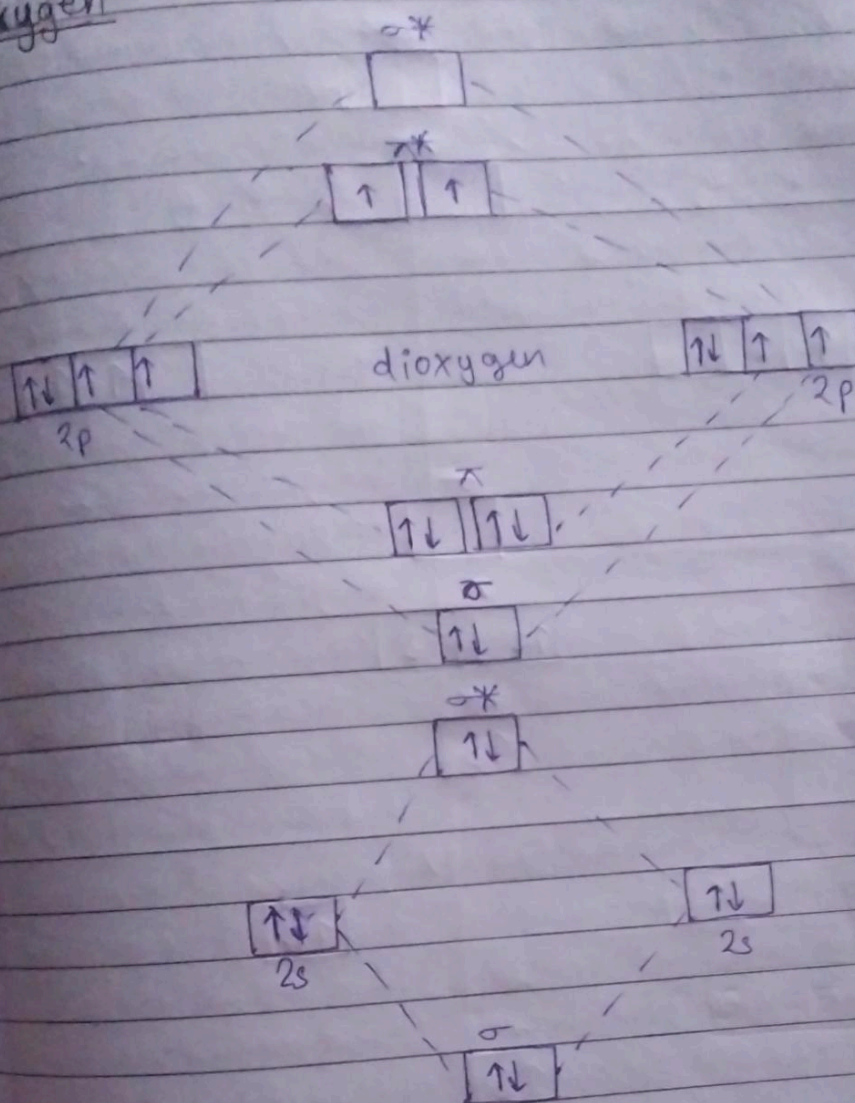 xygen
σ*
π*
↑ ↑
↑↓ ↑ ↑
dioxygen
↑↓ ↑ ↑
2p
2p
π
↑↓ ↑↓
σ
↑↓
σ*
↑↓
↑↓
↑↓
2s
2s
σ
↑↓